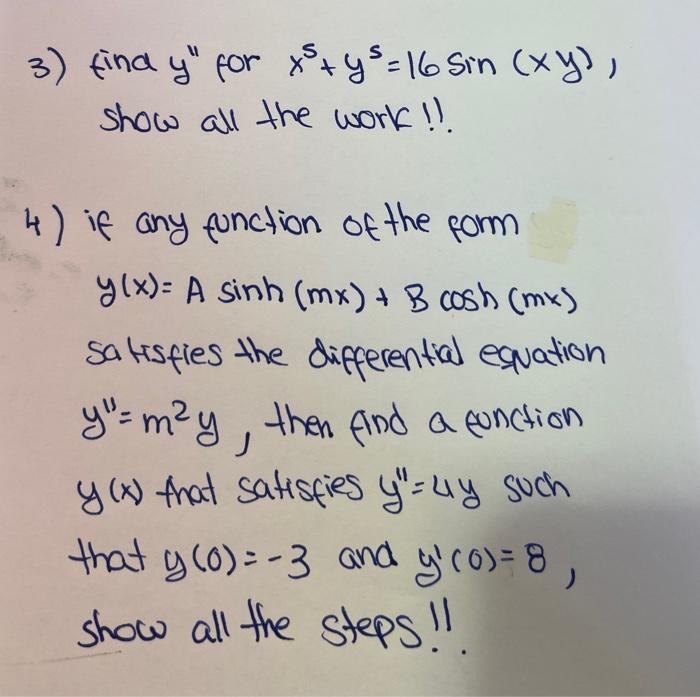 3) find y" for x⁵+y⁵=16 Sin (xy),
show all the work !!.
4) if any function of the form
y(x)= A sinh (mx) + B cosh (mx)
satisfies the differential equation
y"=m²y, then find a function
y(x) that satisfies y"=4y such
that y(0)=-3 and y'(0)=8,
show all the steps!!.